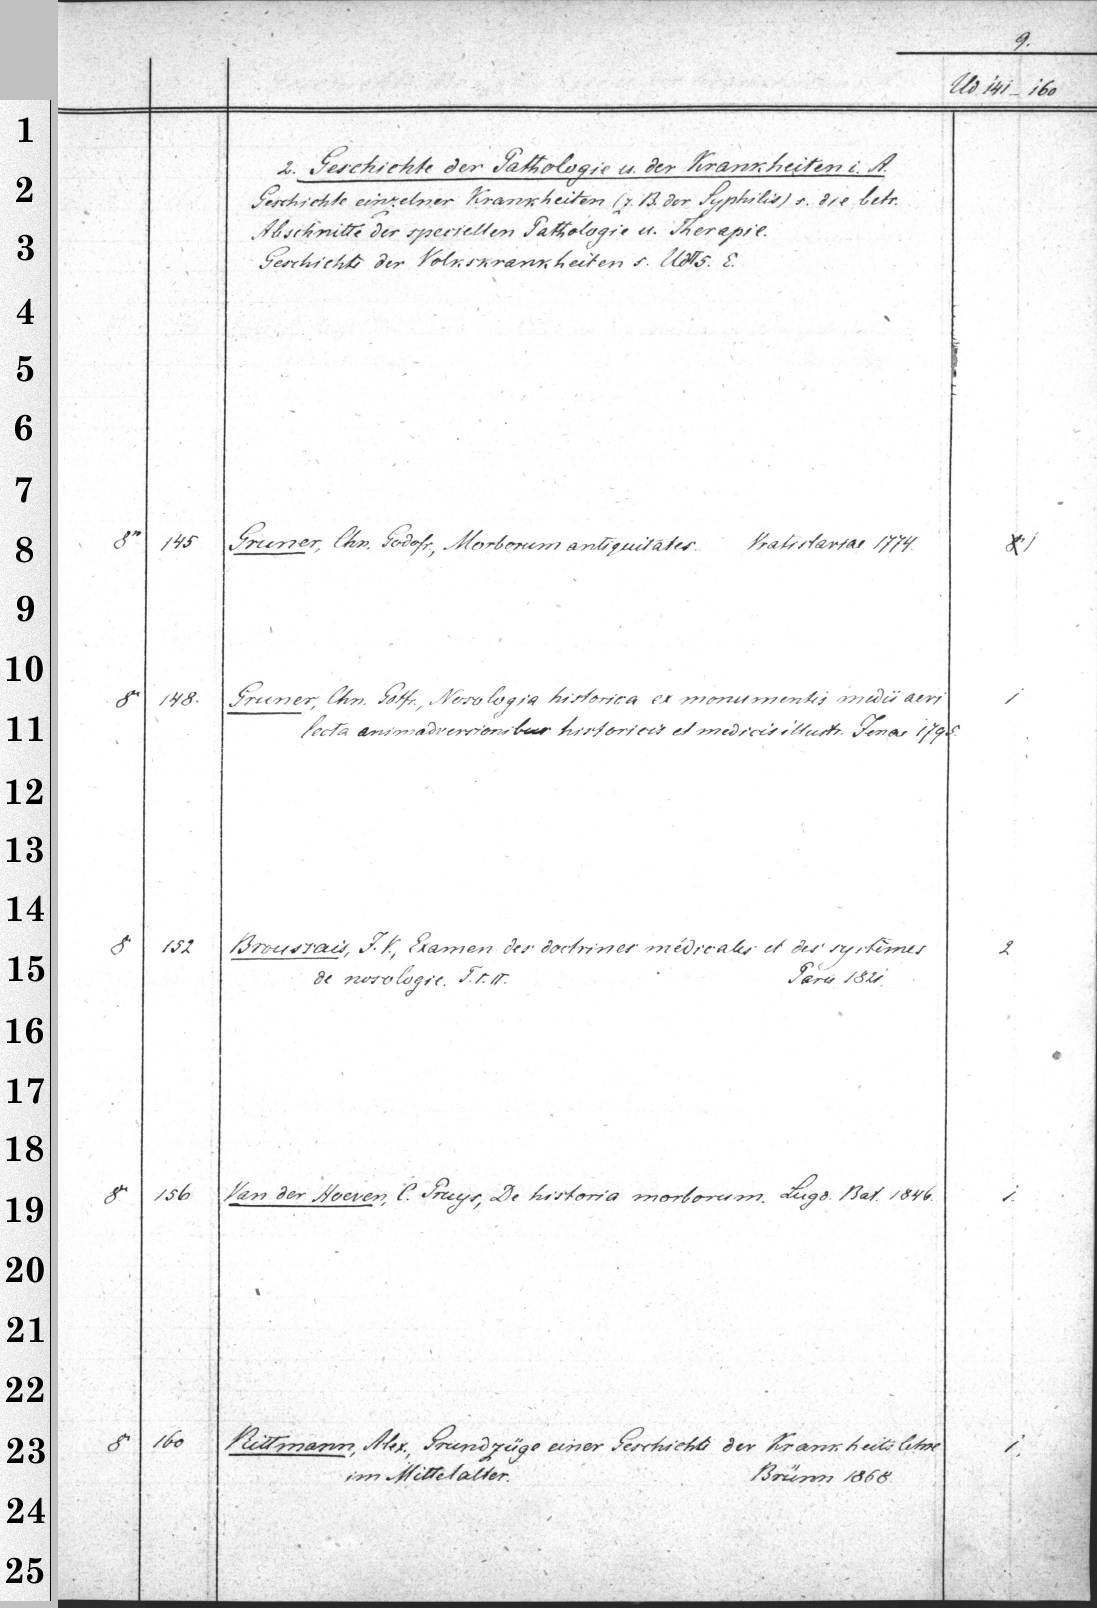 9.
Ud 141 - 160
2. Geschichte der Pathologie u. der Krankheiten i. A.
Geschichte einzelner Krankheiten (z. B. der Syphilis) s. die betr.
Abschnitte der speciellen Pathologie u. Therapie.
Geschichte der Volkskrankheiten s. E.
8° 145 Gruner, Chn. Godofr., Morborum antiquitates. Vratislaviae 1774. 1
8° 148. Gruner, Chn. Gottfr., Nosologia historica ex monumentis medii aevi 1
lecta animadversionibus historicis et medicis illustr. Jenae 1795.
8° 152 Broussais, F. V., Examen des doctrines médicales et des systèmes 2
de nosologie. T. I. II. Paris 1821.
8° 156 Van der Hoeven, C. Pruys, De historia morborum. Lugd. Bat. 1846. 1.
8° 160 Rittmann, Alex., Grundzüge einer Geschichte der Krankheitslehre 1.
im Mittelalter. Brünn 1868
1
2
3
4
5
6
7
8
9
10
11
12
13
14
15
16
17
18
19
20
21
22
23
24
25